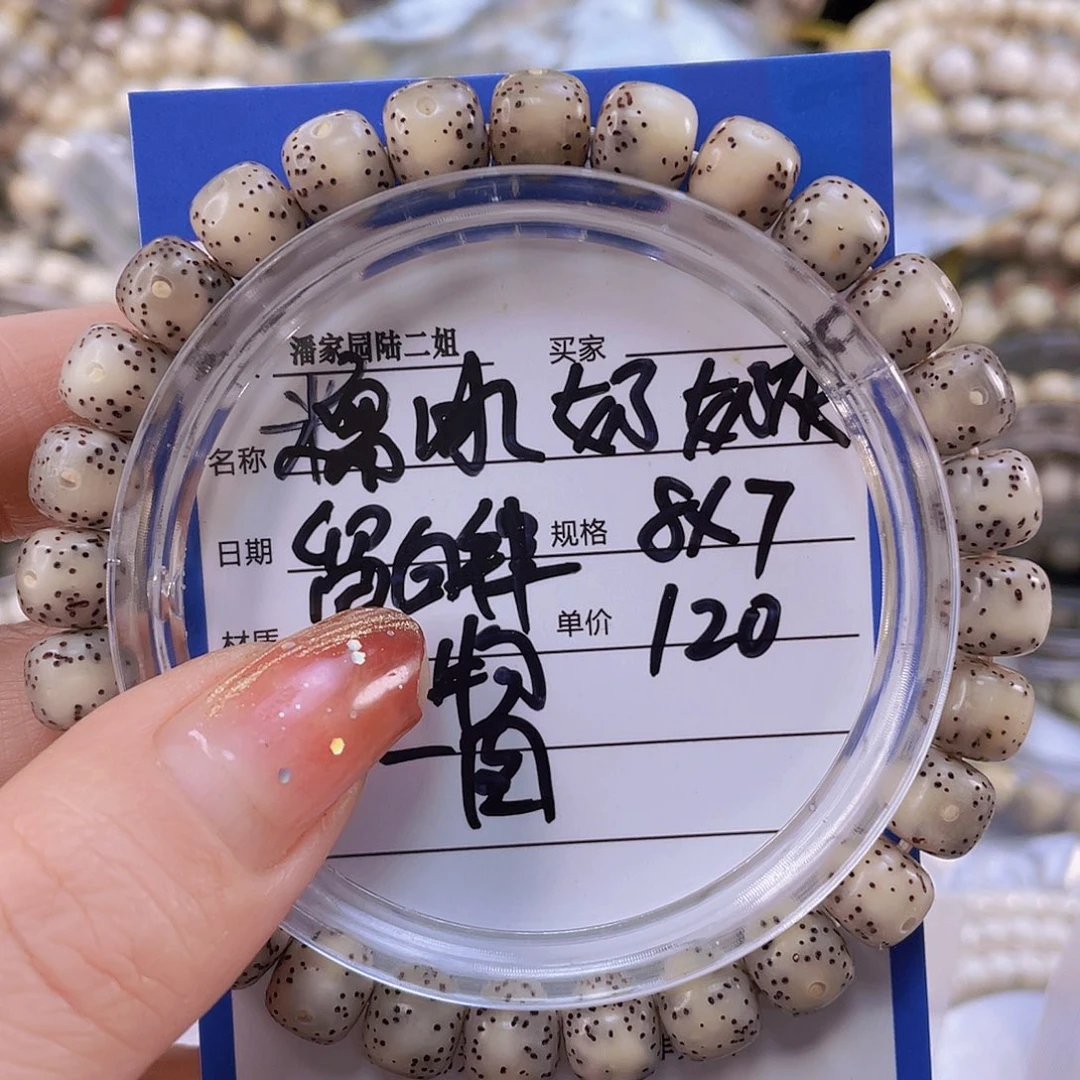 潘家园陆二姐 买家
名称 爆冰奶奶灰
日期 留白胖 规格 8X7
材质 单价 120
物
一圈